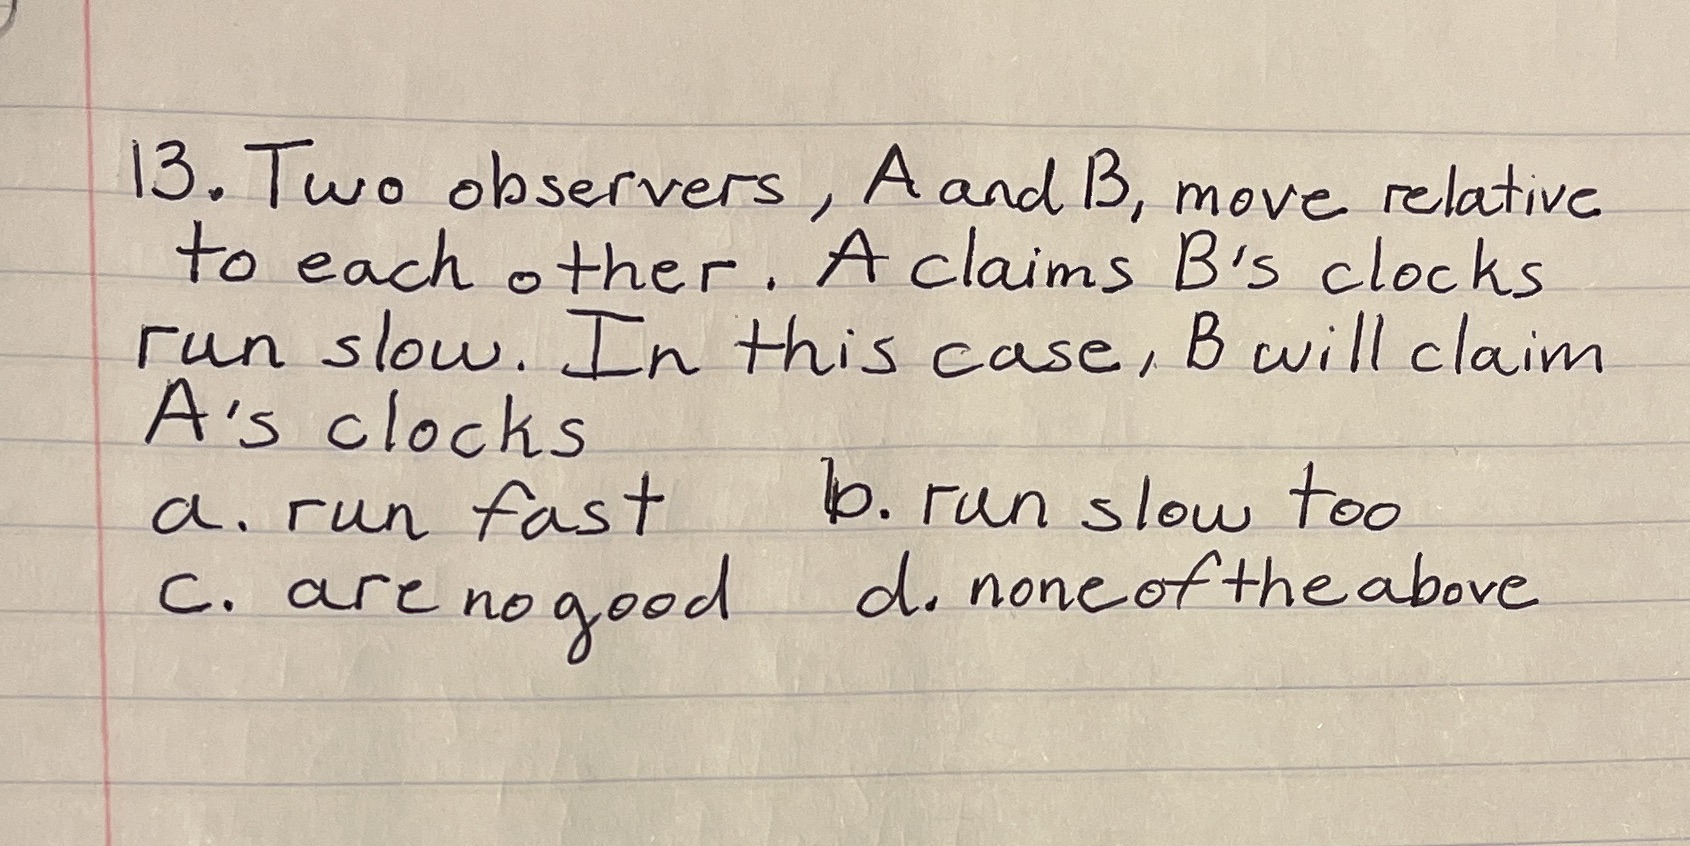 13. Two observers, A and B, move relative
to each other. A claims B's clocks
run slow. In this case, B will claim
A's clocks
a. run fast b. run slow too
c. are no good d. none of the above